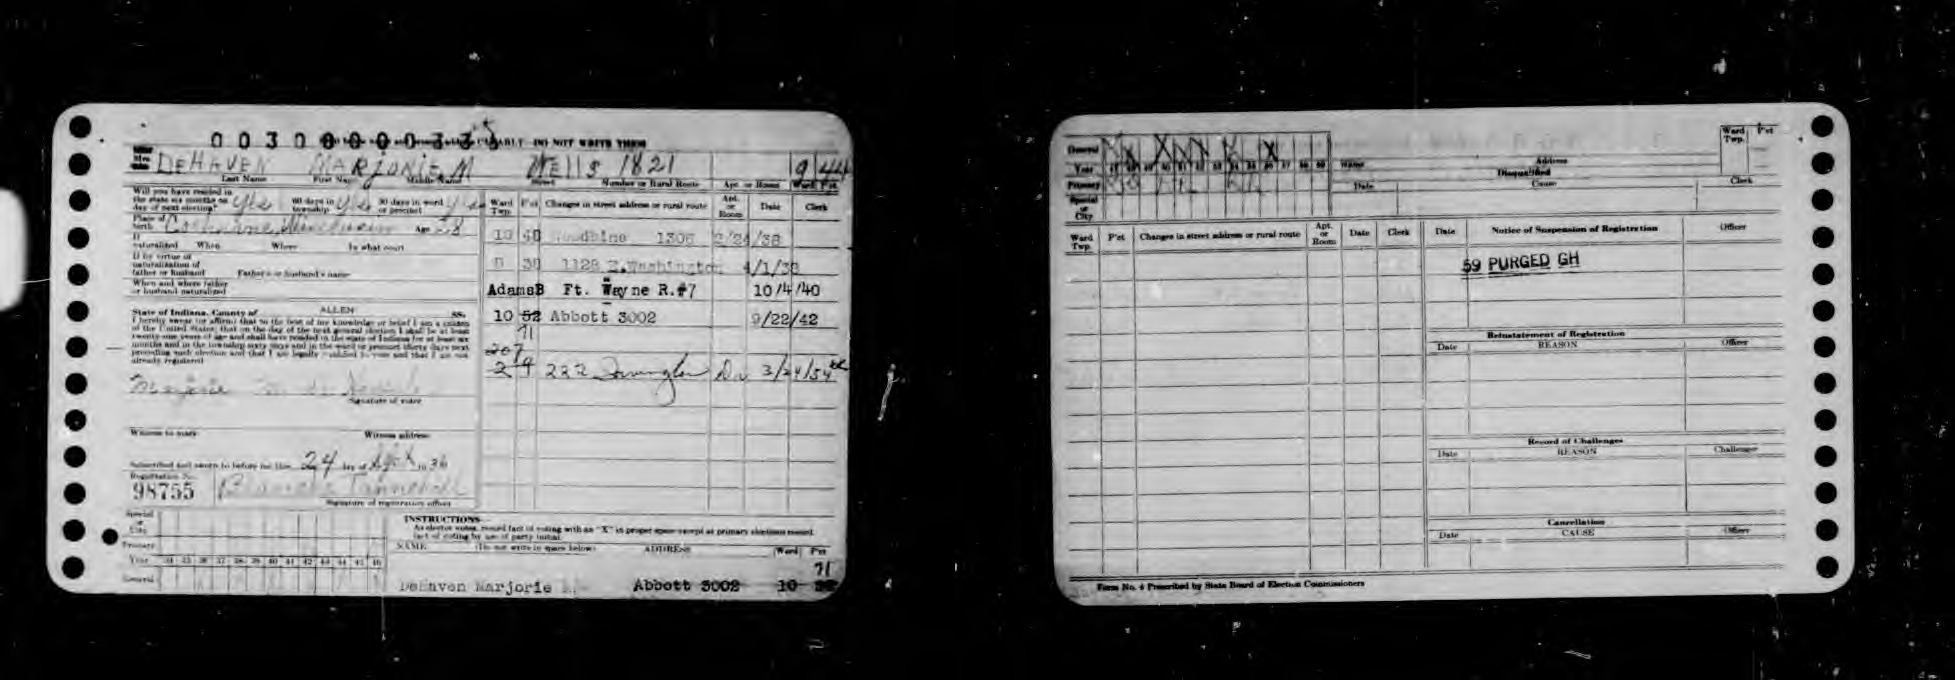 0030000033
DO NOT WRITE THERE
Mrs. DEHAVEN MARJORIE M WELLS 1821 9 44
Last Name First Name Middle Name Street Number or Rural Route Apt. or Room Ward Pct.
Will you have resided in the state six months on day of next election? Yes 60 days in township Yes 30 days in ward or precinct Yes
Place of birth Cochrane Wisconsin Age 28
If naturalized When Where In what court
If by virtue of naturalization of father or husband Father's or husband's name
When and where father or husband naturalized
State of Indiana, County of ALLEN SS.
I hereby swear (or affirm) that to the best of my knowledge or belief I am a citizen
of the United States; that on the day of the next general election I shall be at least
twenty-one years of age and shall have resided in the state of Indiana for at least six
months and in the township sixty days and in the ward or precinct thirty days next
preceding such election and that I am legally qualified to vote and that I am not
already registered
Marjorie M. De Haven
Signature of voter
Witness to mark Witness address
Subscribed and sworn to before me this 24 day of 36
Registration No.
98755
Signature of registration officer
Ward Twp. Pct Changes in street address or rural route Apt. or Room Date Clerk
10 40 Woodbine 1306 2/24/38
1128 E. Washington 4/1/38
AdamsB Ft. Wayne R.#7 10/4/40
10 52 Abbott 3002 9/22/42
71
207
2 9 222 Dr 3/24/54
Special or City
Primary
Year 34 35 36 37 38 39 40 41 42 43 44 45 46
General
INSTRUCTIONS
As elector votes, record fact of voting with an "X" in proper space except at primary elections record
fact of voting by use of party initial.
NAME (Do not write in space below) ADDRESS Ward Pct
71
DeHaven Marjorie M. Abbott 3002 10 52
General X X
Year 47 48 49 50 51 52 53 54 55 56 57 58 59
Primary
Special or City
Name Address Ward Twp. Pct
Disqualified
Date Cause Clerk
Ward Twp. P'ct Changes in street address or rural route Apt. or Room Date Clerk
Date Notice of Suspension of Registration Officer
59 PURGED GH
Reinstatement of Registration
Date REASON Officer
Record of Challenges
Date REASON Challenger
Cancellation
Date CAUSE Officer
Form No. 4 Prescribed by State Board of Election Commissioners